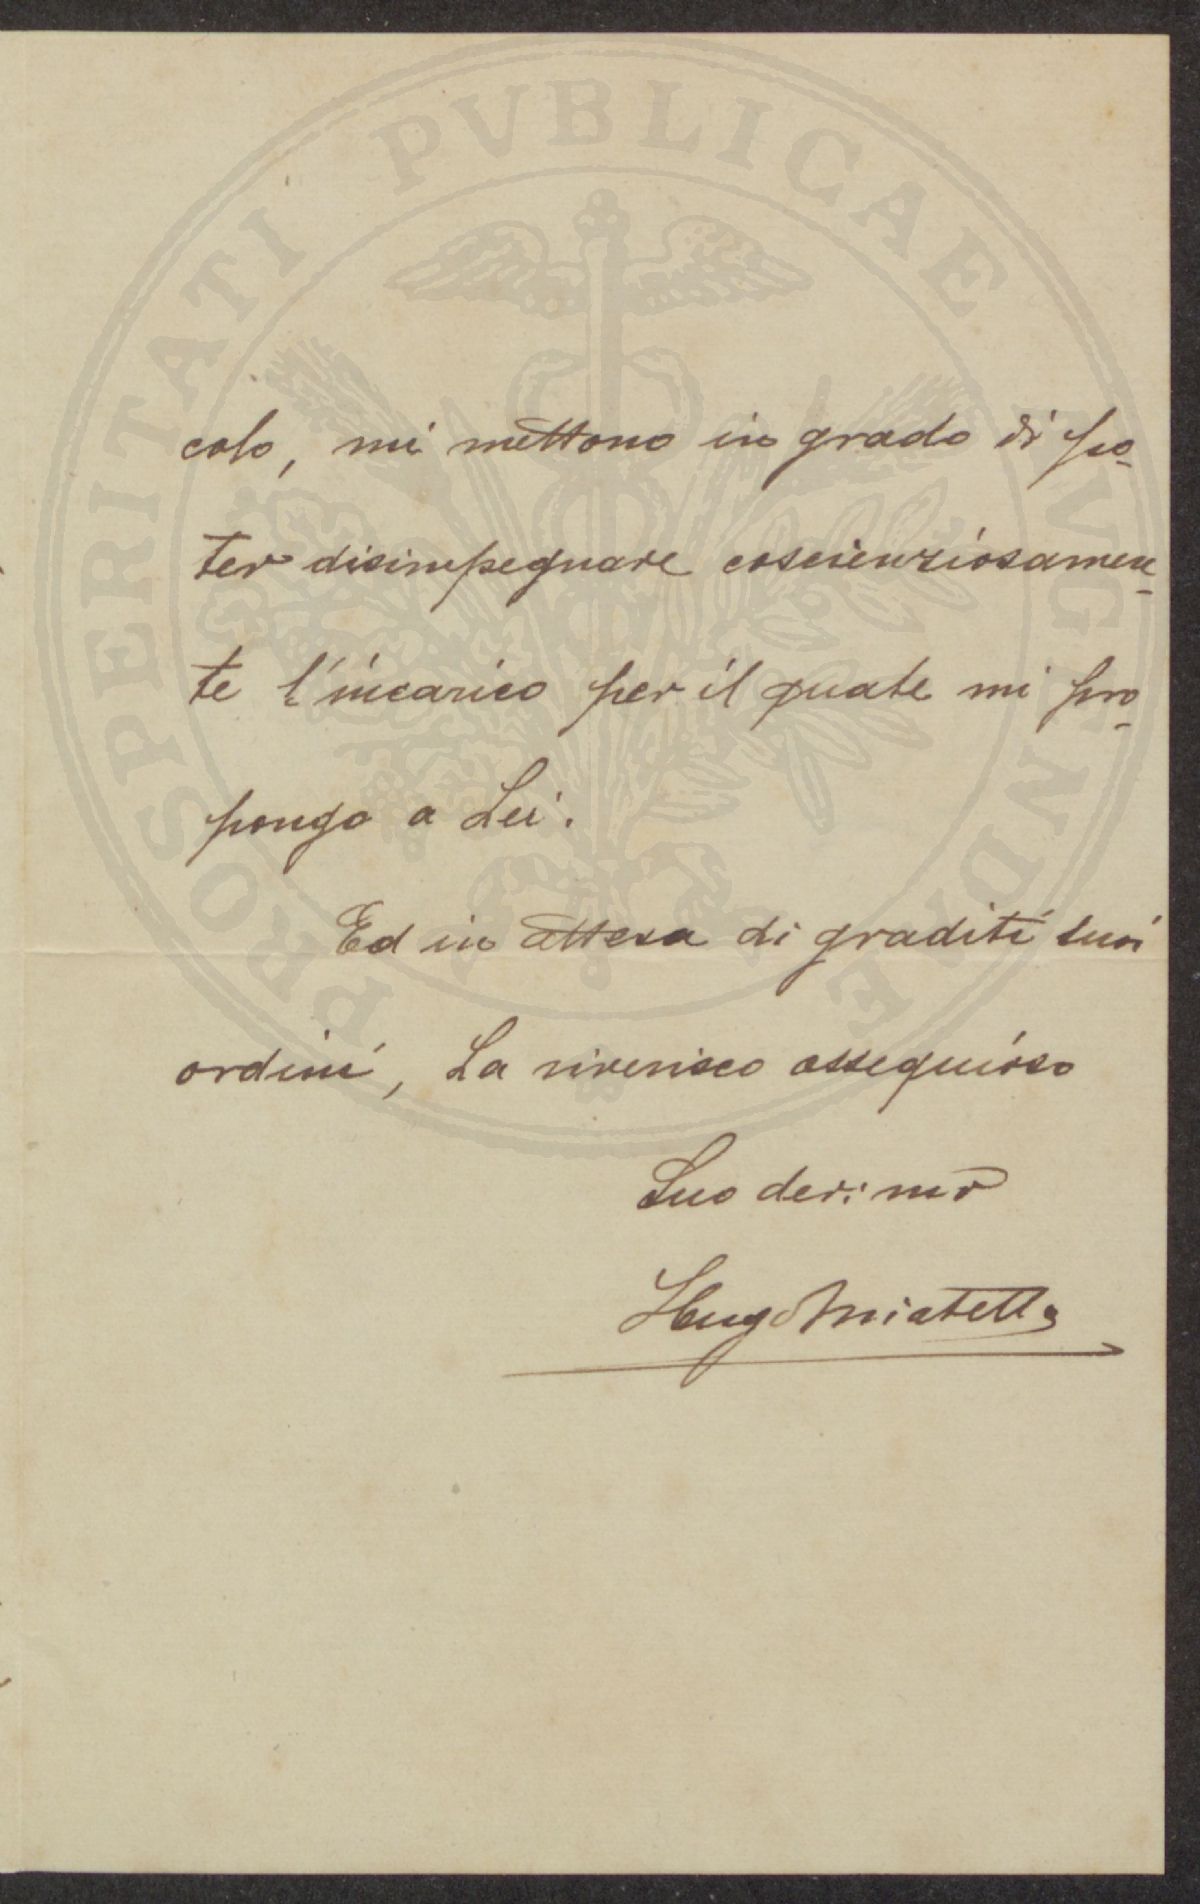 PROSPERITATI PVBLICAE AVGENDAE
colo, mi mettono in grado di po-
ter disimpegnare coscienziosamen-
te l'incarico per il quale mi pro-
pongo a Lei.
Ed in attesa di graditi suoi
ordini, La riverisco ossequioso
Suo dev: mo
Hugo Miatello